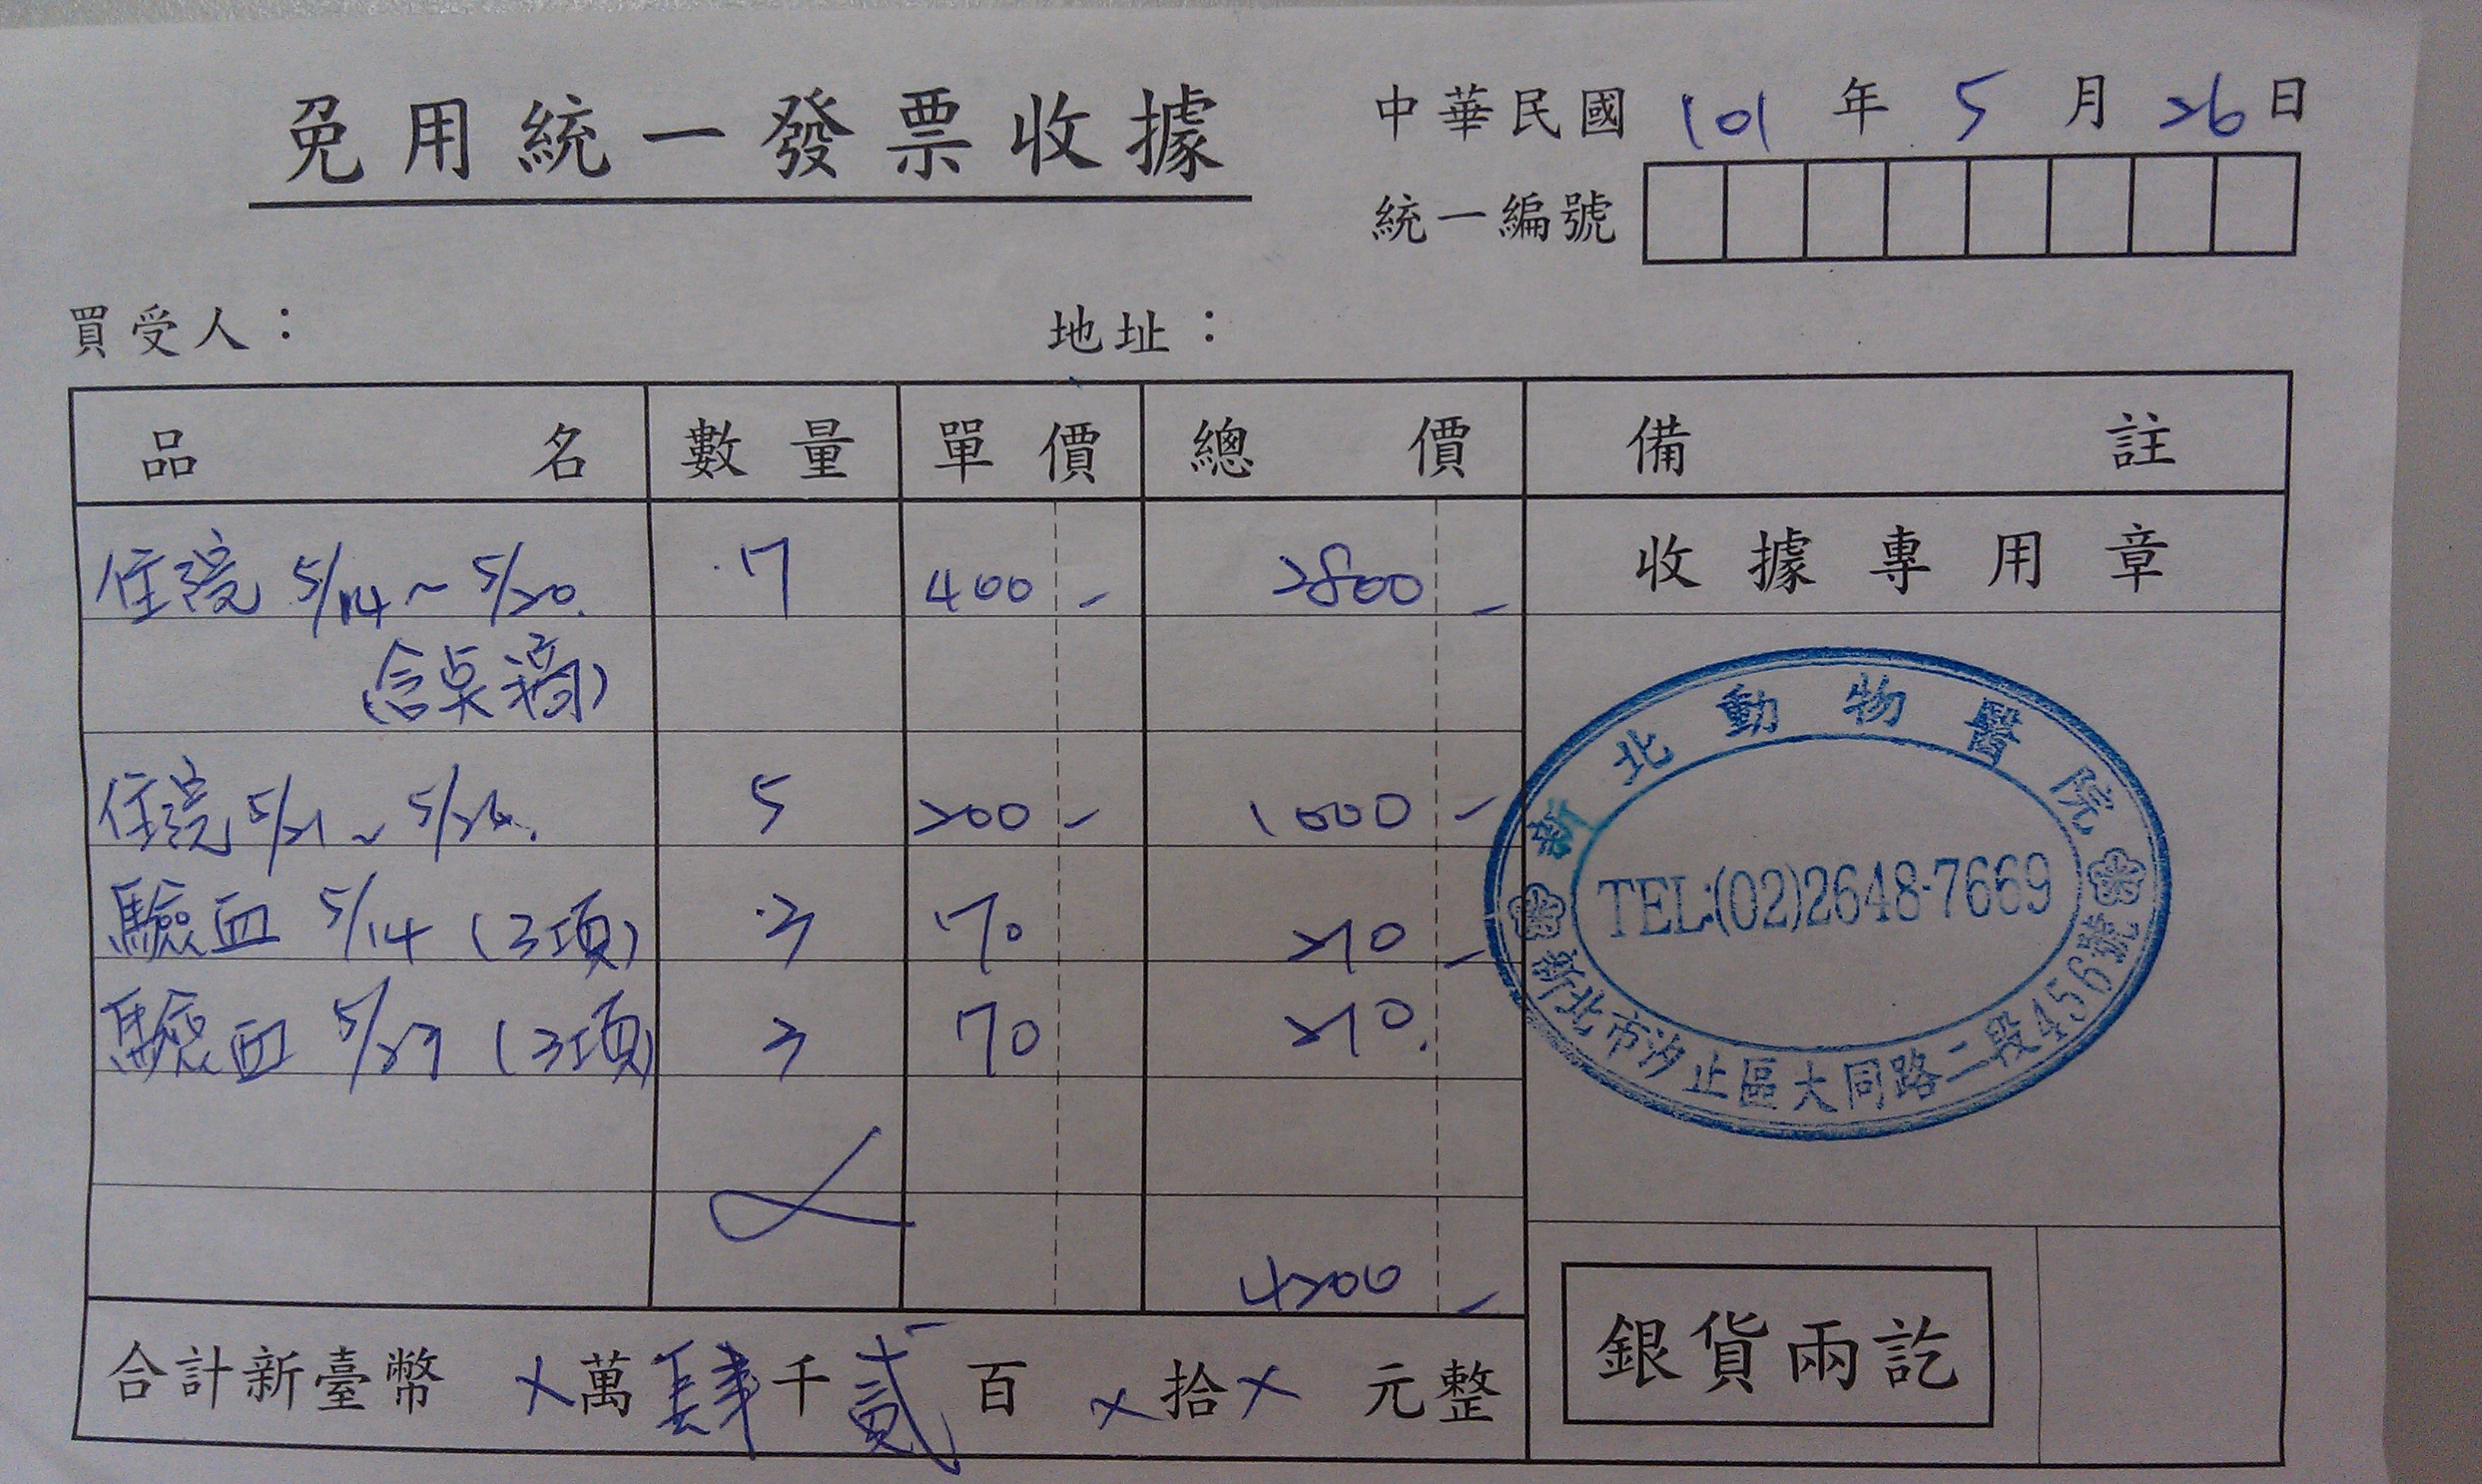 免用統一發票收據
中華民國 101 年 5 月 26 日
統一編號
買受人：
地址：
品名 數量 單價 總價 備註
住院 5/14~5/20. 7 400 - 2800 -
(含点滴)
住院 5/21~ 5 200 - 1000 -
驗血 5/14 (3項) 3 70 210 -
驗血 5/27 (3項) 3 70 210.
4200 -
合計新臺幣 ×萬肆千貳百×拾×元整
收據專用章
新北動物醫院
TEL:(02)2648-7669
新北市汐止區大同路二段456號
銀貨兩訖